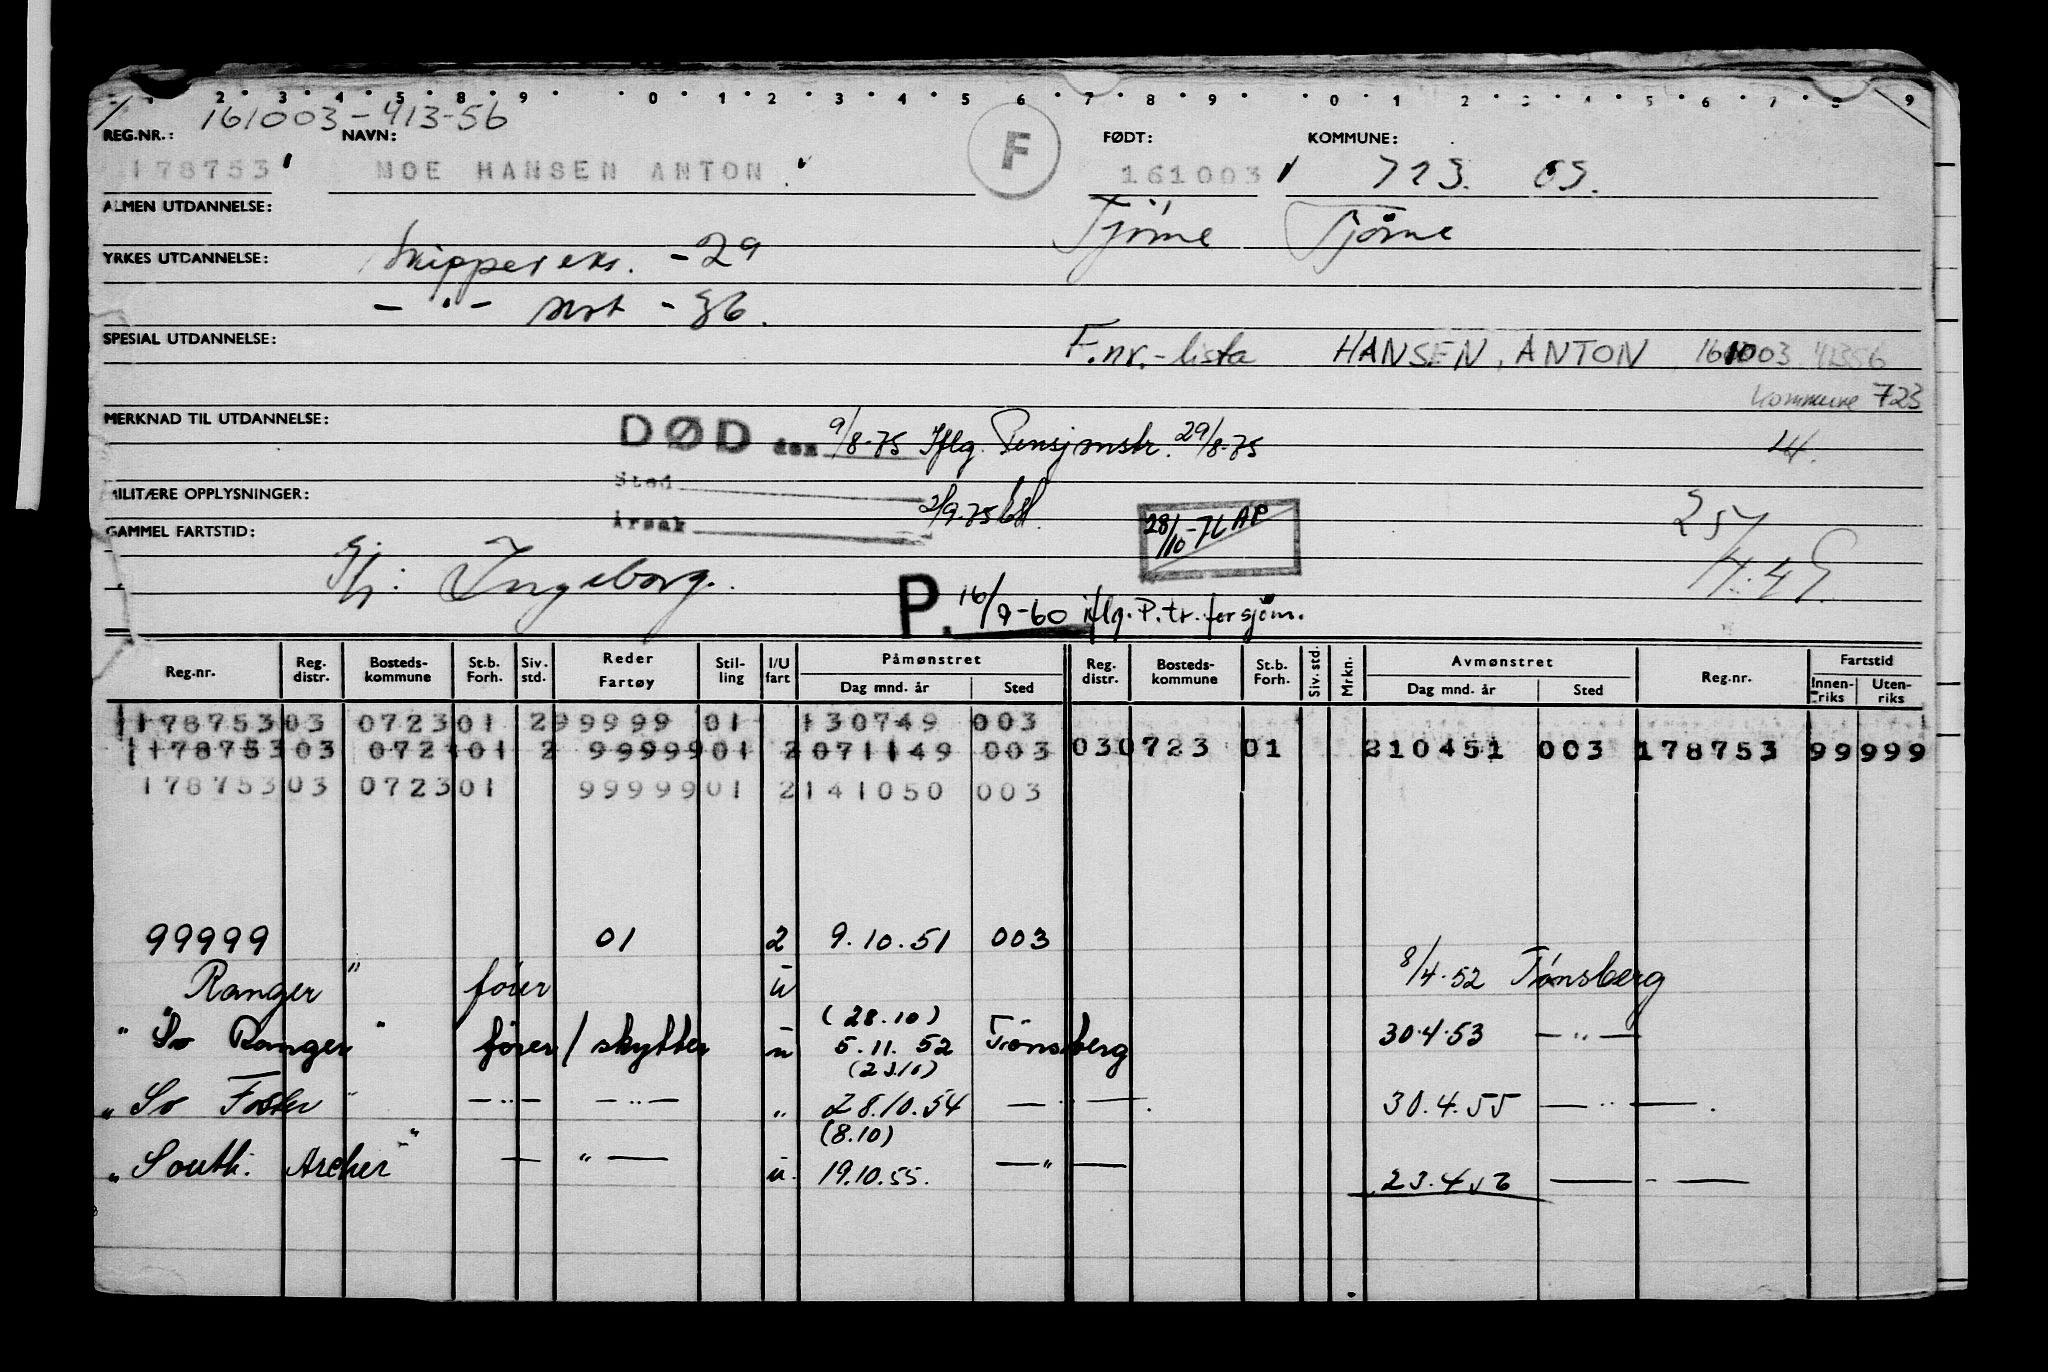 1 2 3 4 5 8 9 0 1 2 3 4 5 6 7 8 9 0 1 2 3 4 5 6 7 8 9
161003-413-56
REG.NR.: NAVN: FØDT: KOMMUNE:
178753 MOE HANSEN ANTON F 161003 723. 03.
ALMEN UTDANNELSE: Tjöme Tjöme
YRKES UTDANNELSE: Skipper eks. - 29
— " — - 36.
SPESIAL UTDANNELSE: F.nr.-lista HANSEN, ANTON 161003 41356
Kommune 723
MERKNAD TIL UTDANNELSE: DØD den 9/8-75 Iflg. Pensjonstr. 29/8-75
Sted 2/9-75
MILITÆRE OPPLYSNINGER: 28/10-76 AP
Årsak
GAMMEL FARTSTID: 25/4.49.
Gj: Ingeborg.
P. 16/9-60 iflg. P.tr. for sjöm.
Reg.nr. Reg. distr. Bosteds-kommune St.b. Forh. Siv. std. Reder Fartøy Stil-ling I/U fart Påmønstret Dag mnd. år Sted Reg. distr. Bosteds-kommune St.b. Forh. Siv. std. Mrkn. Avmønstret Dag mnd. år Sted Reg.nr. Fartstid Innen-riks Uten-riks
178753 03 0723 01 2 99999 01 130749 003
178753 03 072 01 2 99999 01 2 071149 003 03 0723 01 210451 003 178753 99 999
178753 03 0723 01 99999 01 2 141050 003
99999 01 2 9.10.51 003
Ranger " fører u 8/4.52 Tønsberg
(28.10)
" So Ranger " fører / skytter u 5.11.52 Tønsberg 30.4.53 — " —
(23.10)
" So Foster " — " — — " — " 28.10.54 — " — . 30.4.55 — " — .
(8.10)
" South. Archer " — " — u. 19.10.55. — " — 23.4.56 — " —